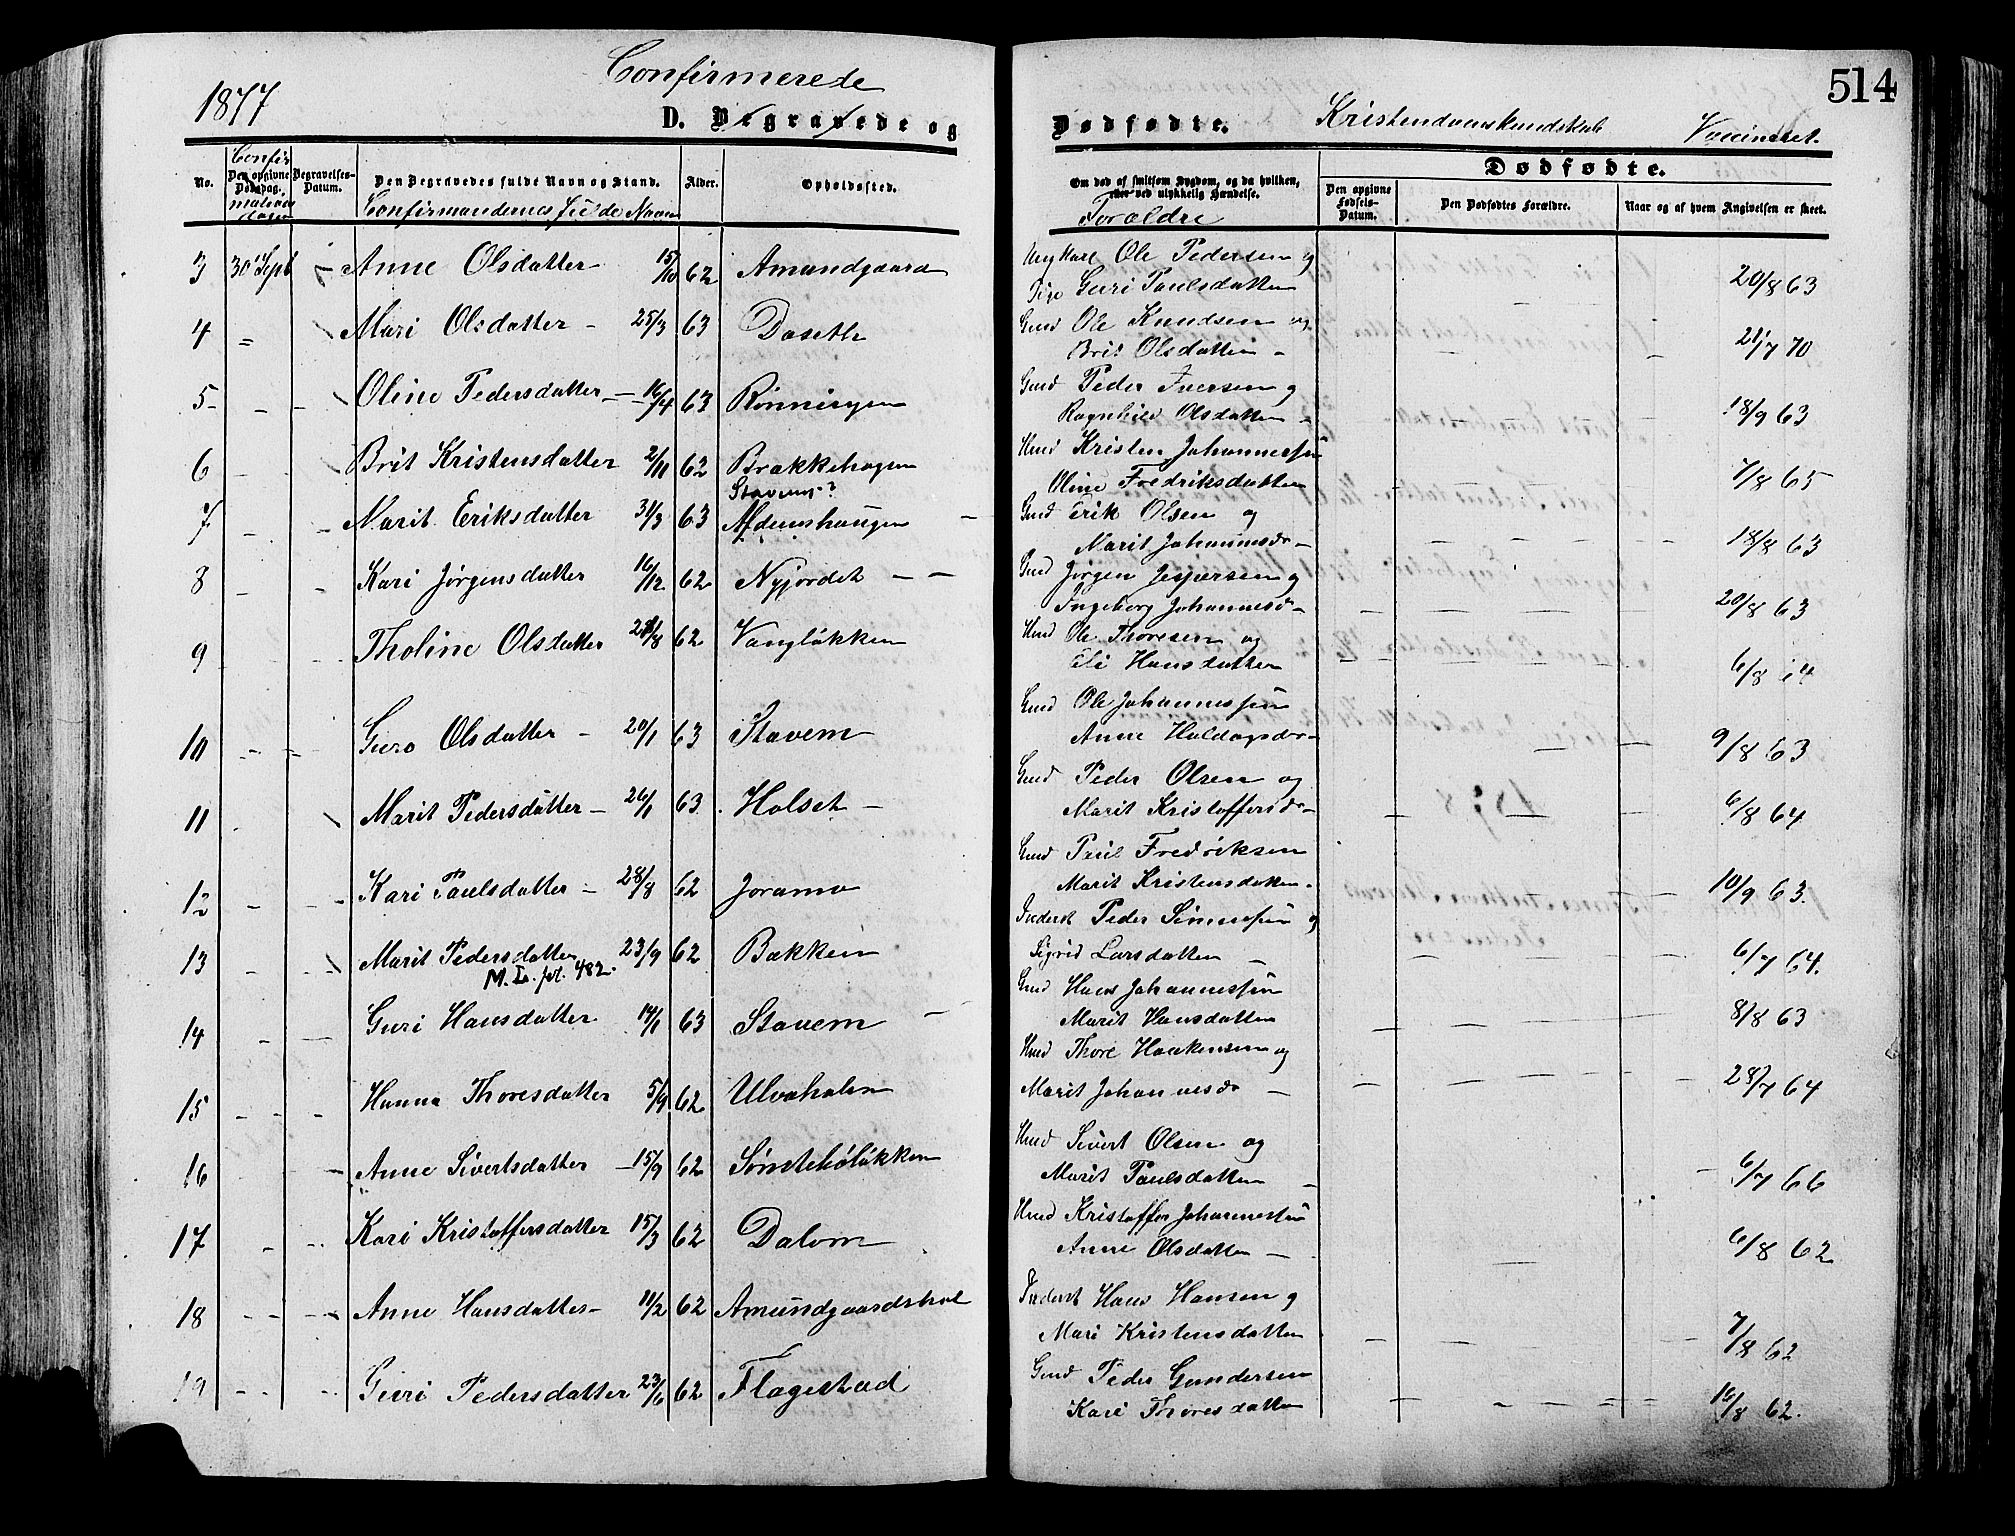 514
1877
Confirmerede
D. Begravede og
Dødfødte.
Kristendomskundskab
Vaccineret.
No.
Confir
Den opgivne Dødsdag.
mations
dagen
Begravelses-Datum.
Den Begravedes fulde Navn og Stand.
Confirmandernes fulde Navn
Alder.
Opholdssted.
Om død af smitsom Sygdom, og da hvilken, eller ved ulykkelig Hændelse.
Forældre
Dødfødte.
Den opgivne Fødsels-Datum.
Den Dødfødtes Forældre.
Naar og af hvem Angivelsen er skeet.
3 30 Sept Anne Olsdatter 15/10 62 Amundgaard Ungkarl Ole Pedersen og
Pige Guri Paulsdatter 20/8 63
4 = Mari Olsdatter - 25/3 63 Doseth Gmd Ole Knudsen og
Brit Olsdatter - 21/7 70
5 - - Oline Pedersdatter - 16/4 63 Rønningen Gmd Peder Iversen og
Ragnhild Olsdatter - 18/9 63
6 - - Brit Kristensdatter 2/11 62 Brækkehagen Hmd Kristen Johannessen
Oline Fredriksdatter 7/8 65
Stavem?
7 - Marit Eriksdatter 31/3 63 Afdemshaugen - Gmd Erik Olsen og
Marit Johannesdr - 18/8 63
8 - - Kari Jørgensdatter 16/12 62 Nyjordet - - Gmd Jørgen Jespersen og
Ingeborg Johannesdr - 20/8 63
9 - - Tholine Olsdatter 21/8 62 Vangløkken Hmd Ole Thoresen og
Eli Hansdatter 6/8 64
10 - - Guro Olsdatter - 20/1 63 Stavem Gmd Ole Johannessen
Anne Haldogsdr - 9/8 63
11 Marit Pedersdatter - 26/1 63 Holset - Gmd Peder Olsen og
Marit Kristoffersdr - 6/8 64
12 - - Kari Paulsdatter - 28/8 62 Joramo Gmd Paul Fredriksen
Marit Kristensdatter. 10/9 63.
13 - - Marit Pedersdatter 23/9 62 Bækken Inderst Peder Simensen og
M. L. fol. 482.
Sigrid Larsdatter - 6/7 64.
14 - - Guri Hansdatter 14/1 63 Stavem - Gmd Hans Johannessen
Marit Hansdatter 8/8 63
15 - - Hanna Thoresdatter 5/9 62 Ulvaholen Hmd Thore Haakensen og
Marit Johannesdr - 28/7 64
16 - - Anne Sivertsdatter - 15/9 62 Sønstebøløkken Hmd Sivert Olsen og
Marit Paulsdatter - 6/7 66
17 - - Kari Kristoffersdatter 15/3 62 Dalom Hmd Kristoffer Johannessen
Anne Olsdatter - 6/8 62
18 - - Anne Hansdatter - 11/2 62 Amundgaardshol Inderst Hans Hansen og
Mari Kristensdatter 7/8 62
19 - - Guri Pedersdatter 23/6 62 Flagestad Gmd Peder Gundersen
Kari Thoresdatter 16/8 62.